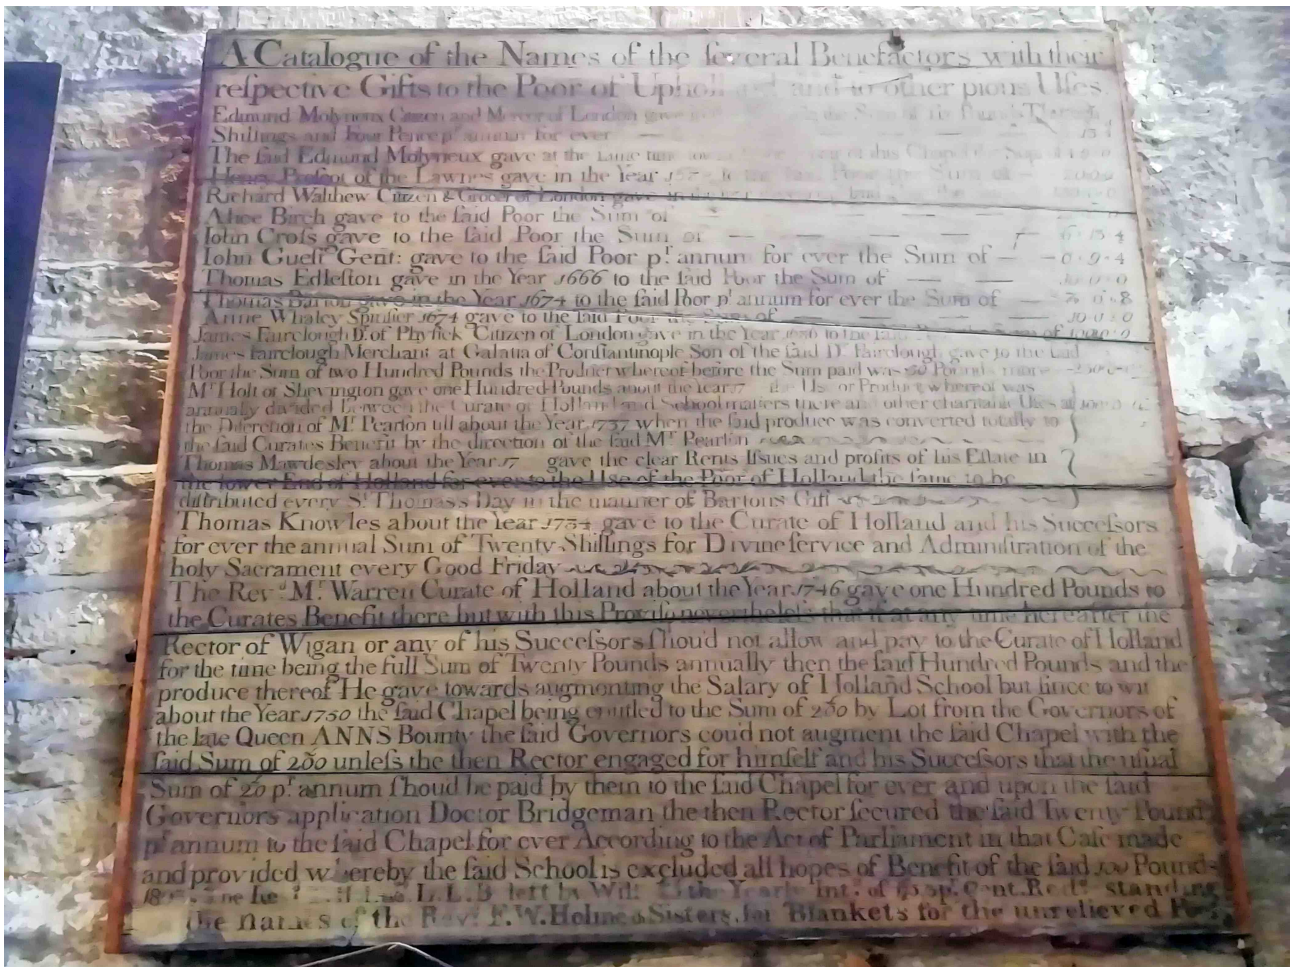 A Catalogue of the Names of the several Benefactors with their
respective Gifts to the Poor of and to other pious Uses
Edmund Molyneux Citizen and Mercer of London gave the Sum of
Shillings and Four Pence pr annum for ever
The said Edmund Molyneux gave at the same time this Chapel the Sum
Henry Prescot of the Lawnes gave in the Year to the said Poor the Sum of
Richard Walthew Citizen & Grocer of London gave
Alice Birch gave to the said Poor the Sum of
John Cross gave to the said Poor the Sum of — — — — 6 · 13 · 4
John Guest Gent: gave to the said Poor pr annum for ever the Sum of — 0 · 9 · 4
Thomas Edleston gave in the Year 1666 to the said Poor the Sum of — — 10 · 0 · 0
Thomas Barton gave in the Year 1674 to the said Poor pr annum for ever the Sum of
Anne Whaley Spinster 1674 gave to the said Poor the Sum of — — — 10 · 0 · 0
James Fairclough Dr. of Physick Citizen of London gave in the Year to the said
James Fairclough Merchant at Galatia of Constantinople Son of the said Dr Fairclough gave to the said
Poor the Sum of two Hundred Pounds the Product whereof before the Sum paid was 50 Pounds more
Mr Holt of Shevington gave one Hundred Pounds about the Year 17 the Use or Produce whereof was
annually divided between the Curate of Holland and Schoolmasters there and other charitable Uses at
the Discretion of Mr Pearson till about the Year 1737 when the said produce was converted totally to
the said Curates Benefit by the direction of the said Mr Pearson
Thomas Mawdesley about the Year 17 gave the clear Rents Issues and profits of his Estate in
the lower End of Holland for ever to the Use of the Poor of Holland the same to be
distributed every St Thomas's Day in the manner of Bartons Gift
Thomas Knowles about the Year 1734 gave to the Curate of Holland and his Successors
for ever the annual Sum of Twenty Shillings for Divine service and Administration of the
holy Sacrament every Good Friday
The Revd Mr Warren Curate of Holland about the Year 1746 gave one Hundred Pounds to
the Curates Benefit there but with this Proviso nevertheless that if at any time hereafter the
Rector of Wigan or any of his Successors shou'd not allow and pay to the Curate of Holland
for the time being the full Sum of Twenty Pounds annually then the said Hundred Pounds and the
produce thereof He gave towards augmenting the Salary of Holland School but since to wit
about the Year 1750 the said Chapel being entitled to the Sum of 200 by Lot from the Governors of
the late Queen ANNS Bounty the said Governors coud not augment the said Chapel with the
said Sum of 200 unless the then Rector engaged for himself and his Successors that the usual
Sum of 20 pr annum shoud be paid by them to the said Chapel for ever and upon the said
Governors application Doctor Bridgeman the then Rector secured the said Twenty Pound
pr annum to the said Chapel for ever According to the Act of Parliament in that Case made
and provided whereby the said School is excluded all hopes of Benefit of the said 100 Pounds
L.L.B left by Will the Yearly Int. of pr Cent. Red. standing
the names of the Revd F. W. Holme & Sisters, for Blankets for the unrelieved